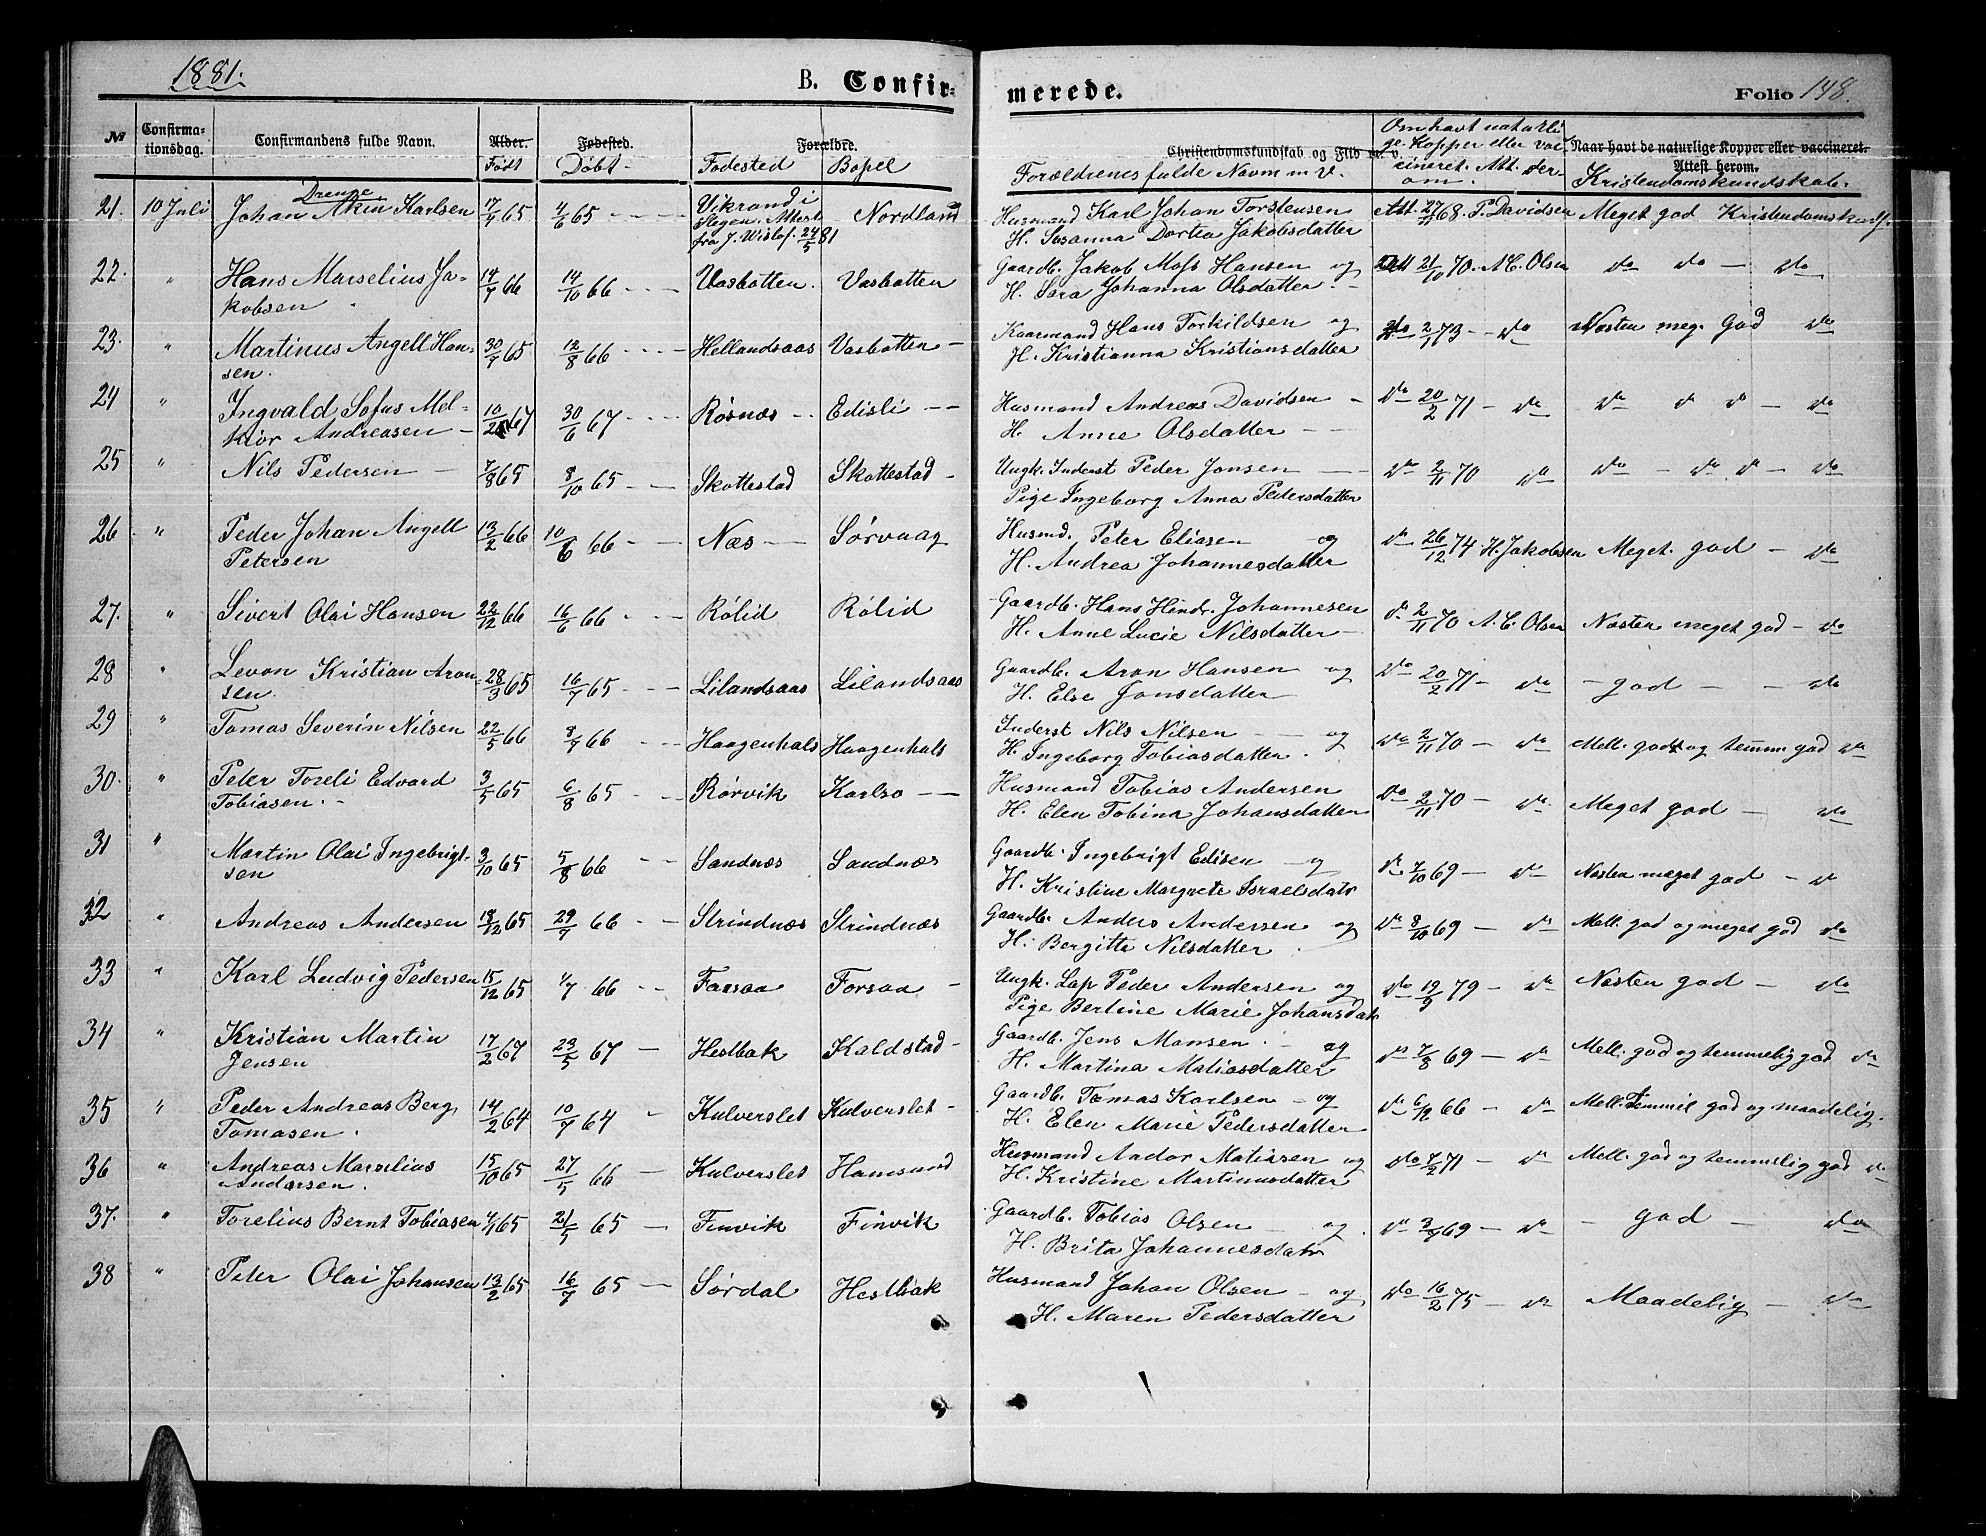 1881.
B. Confir-
merede.
Folio 148.
№ Confirma-tionsdag. Confirmandens fulde Navn. Alder. Født Fødested. Døbt Forældre. Fødested Bopel Christendomskundskab og Flid m. v. Forældrenes fulde Navn m. V. Om havt naturlige Kopper eller vaccineret. Att. derom. Naar havt de naturlige Kopper eller vaccineret. Attest herom. Kristendomskundskab.
Drenge
21. 10 Juli Johan Akin Karlsen 17/1 65 4/6 65 - - - Vikrand i Nordland Husmand Karl Johan Torstensen Att. 27/11 68. P. Davidsen Meget god Kristendomskundsk.
Stegen. Attest
fra J. Wisløf. 24/5 81 H. Susanna Dortea Jakobsdatter
22. " Hans Marselius Ja- 14/7 66 14/10 66 - - - Vasbotten. Vasbotten Gaardb. Jakob Moss Hansen og Att 21/10 70. A. C. Olsen do do - do
kobsen H. Sara Johanna Olsdatter. -
23. " Martinus Angell Han- 30/7 65 12/8 66 - - - Hellandsaas Vasbotten - Kaarmand Hans Torkildsen og do 2/1 73 - do Næsten meg. God do
sen. H. Kristianna Kristiansdatter
24 " Ingvald Sofus Mel- 10/2 67 30/6 67 - - Røsnæs - Edisli - - Husmand Andreas Davidsen - do 20/2 71 - do do d d - do
kiør Andreasen - H. Anne Olsdatter - -
25 " Nils Pedersen - 7/8 65 8/10 65 - - Skottestad Skottestad - Ungk. Inderst Peder Jonsen - do 2/11 70 do do - do d - do
Pige Ingeborg Anna Pedersdatter
26 " Peder Johan Angell 13/2 66 10/6 66 - - Næs - Sørvaag Husmd. Peter Eliasen og do 26/12 74 H. Jakobsen Meget. god - do
Petersen H. Andrea Johannesdatter
27. " Sivert Olai Hansen 22/12 66 16/6 66 - - - Rølid Rølid Gaardb. Hans Hendr. Johannesen d. 2/11 70 A. C. Olsen Næsten meget god - do
H. Anne Lucie Nilsdatter -
28 " Levon Kristian Aron- 28/3 65 16/7 65 - - Lilandsaas Lilandsaas Gaardb. Aron Hansen og do 20/2 71 - do - god - - do
sen. H. Else Jonsdatter
29 " Tomas Severin Nilsen 22/5 66 8/7 66 - - Haagenhals Haagenhals Inderst Nils Nilsen - og do 2/11 70 - do Mell. god og temm god do
H. Ingeborg Tobiasdatter
30. " Peter Toreli Edvard 3/5 65 6/8 65 - - Rørvik Karlsø - - Husmand Tobias Andersen do 2/11 70 - do. Meget god - do
Tobiasen. - H. Elen Tobina Johansdatter
31 " Martin Olai Ingebrigt- 3/10 65 5/8 66 - - Sandnæs Sandnæs Gaardb. Ingebrigt Edisen - og do 7/10 69 - do Næsten meget god - do
sen H. Kristine Margrete Israelsdatr
32 " Andreas Andersen 18/12 65 29/7 66 - - Strindnæs Strindnæs Gaardb. Anders Andersen og do 8/10 69 - do Mell. god og meget god do
H. Bergitte Nilsdatter
33 " Karl Ludvig Pedersen 15/12 65 1/7 66 - - Forsaa Forsaa - Ungk. Lap Peder Andersen og do 19/9 79 - do Næsten god - do
Pige Berline Marie Johansdatr
34 " Kristian Martin 17/2 67 23/5 67 - Hestbak Kaldstad - Gaardb. Jens Monsen. - og do 7/8 69 - do Mell. god og temmelig god do
Jensen H. Martina Matiasdatter
35 " Peder Andreas Berg 14/2 64 10/7 64 - Kulverslet Kulverslet - Gaardb. Tomas Karlsen - og do 6/12 66 - do Mell. Temmel god og maadelig.
Tomasen. H. Elen Marie Pedersdatter
36 " Andreas Marselius 15/10 65 27/5 66 - Kulverslet Hamsund Husmand Andor Matisen og do 7/2 71 - do Mell. god og temmelig god do
Andorsen. H. Kristine Martinusdatter
37. " Torelius Bernt Tobiasen 4/1 65 21/5 65 - Finvik Finvik Gaardb. Tobias Olsen og do 3/9 69 - do - god - do
H. Brita Johannesdatr
38 " Peter Olai Johansen 13/2 65 16/7 65 - Sørdal Hestbak Husmand Johan Olsen - og do 16/2 75 - do Maadelig - do
H. Maren Pedersdatter